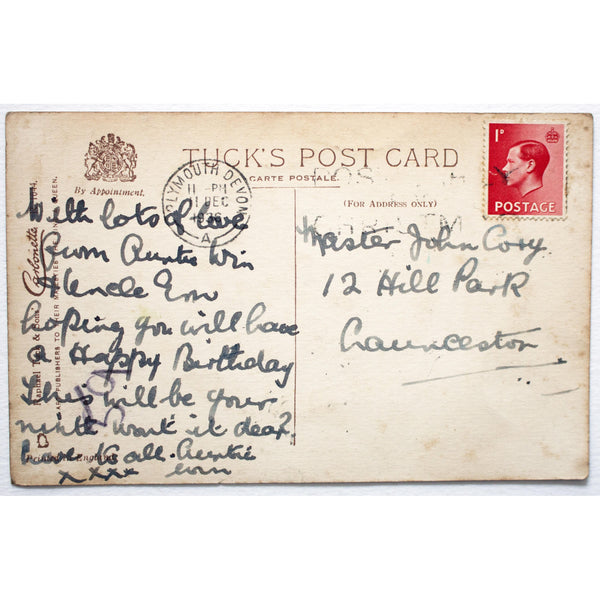 TUCK'S POST CARD
CARTE POSTALE.
(FOR ADDRESS ONLY)
By Appointment.
PLYMOUTH DEVON
11 - PM
1 DEC
1936
A
1D
POSTAGE
With lots of love
from Auntie Win
& Uncle Ern
hoping you will have
a Happy Birthday
This will be your
ninth wont it dear?
love to all. Auntie
xxxx Win
Master John Cory
12 Hill Park
Launceston
Raphael Tuck & Sons
"Carbonette"
ART PUBLISHERS TO THEIR MAJESTIES THE KING AND QUEEN.
Printed in England